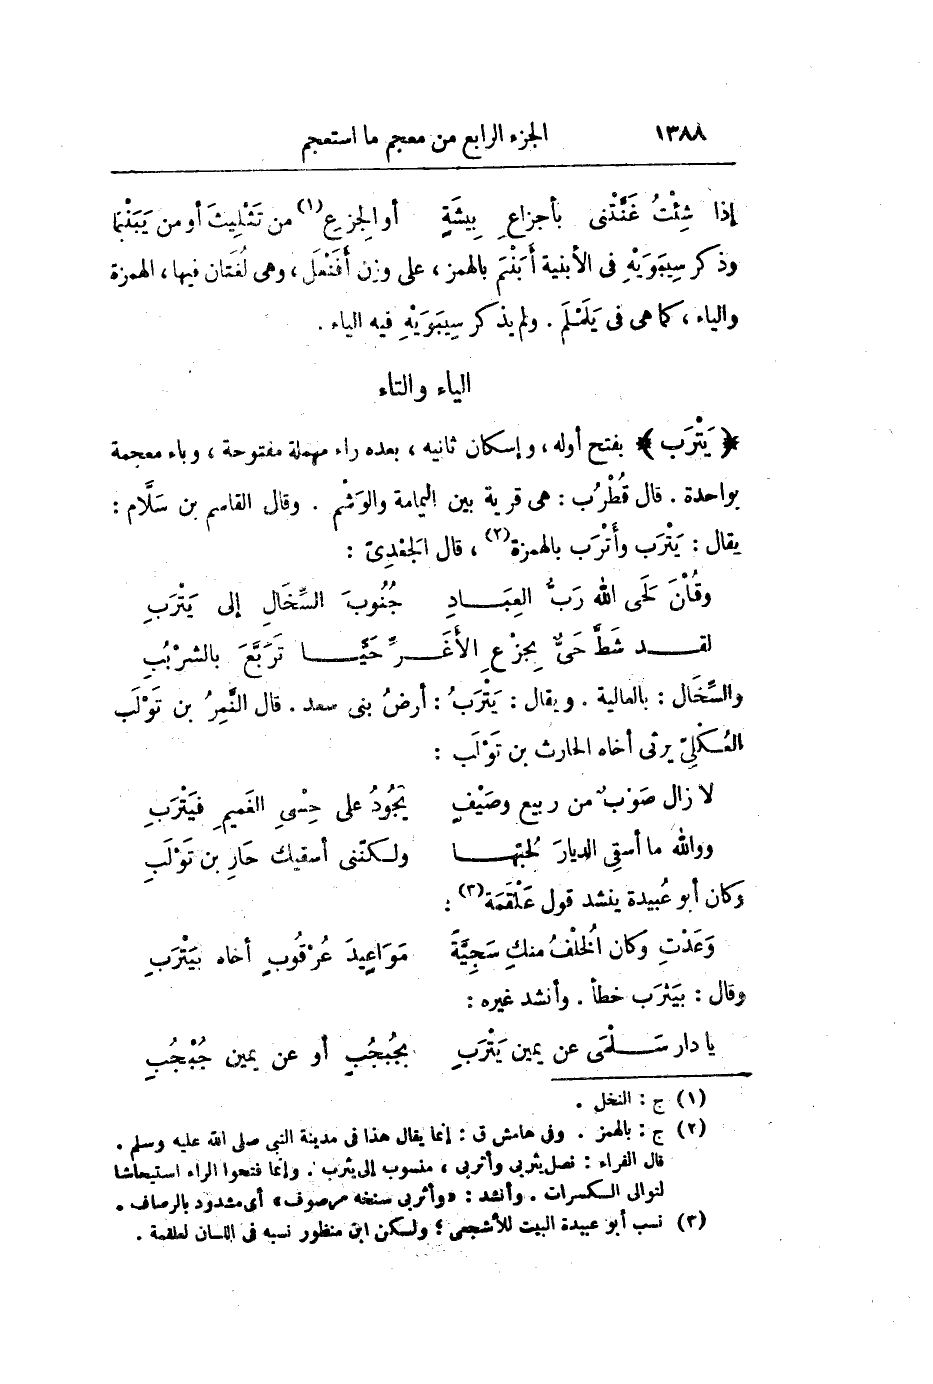 ١٣٨٨ الجزء الرابع من معجم ما استعجم
إذا شِئْتُ غَنَّتْنى بأجزاعِ بِيشَةٍ أو الجِزعِ(١) من تَثْلِيثَ أو من يَبَنْبَمَا
وذكر سِيبَوَيْهِ فى الأبنية أَبَنْبَمَ بالهمز ، على وزن أَفَنْعَل ، وهى لُغَتان فيها ، الهمزة
والياء ، كما هى فى يَلَمْلَم . ولم يذكر سِيبَوَيْهِ فيه الياء .
الياء والتاء
﴿ يَتْرَب ﴾ بفتح أوله ، وإسكان ثانيه ، بعده راء مهملة مفتوحة ، وباء معجمة
بواحدة . قال قُطْرُب : هى قرية بين اليمامة والوَشْم . وقال القاسم بن سَلَّام :
يقال : يَتْرَب وأَتْرَب بالهمزة(٢) ، قال الجَعْدِىّ :
وقُلْنَ لَحَى الله رَبُّ العِبَـــادِ جُنُوبَ السِّخَالِ إلى يَتْرَبِ
لقـــد شَطَّ حَىٌّ بِجِزْعِ الأَغَــرِّ حَيًّـــا تَرَبَّعَ بالشرْبُبِ
والسِّخَال : بالعالية . ويقال : يَتْرَبُ : أرضُ بنى سعد . قال النَّمِرُ بن تَوْلَب
العُكْلِىّ يرثى أخاه الحارث بن تَوْلَب :
لا زال صَوْبٌ من ربيع وصَيْفٍ يَجُودُ على حِسْىِ الغَميمِ فيَتْرَبِ
ووالله ما أسقِى الديارَ لحُبّهـــا ولكنّنى أسقيك حَارِ بن تَوْلَبِ
وكان أبو عُبيدة ينشد قول عَلْقَمَة(٣) :
وَعَدْتِ وكان الُخلْفُ منكِ سَجِيَّةً مَوَاعِيدَ عُرْقُوبٍ أخاه بيَتْرَبِ
وقال : بيَثرَب خطأ . وأنشد غيره :
يا دار سَـــلْمَى عن يمين يَتْرَبِ بجُبجُبٍ أو عن يمين جُبْجُبِ
(١) ج : النخل .
(٢) ج : بالهمز . وفى هامش ق : إنما يقال هذا فى مدينة النبى صلى الله عليه وسلم .
قال الفراء : نصل يثربى وأثربى ، منسوب إلى يثرب . وإنما فتحوا الراء استيحاشا
لتوالى الكسرات . وأنشد : «وأثربى سنخه مرصوف» أى مشدود بالرصاف .
(٣) نسب أبو عبيدة البيت للأشجعى ؛ ولكن ابن منظور نسبه فى اللسان لعلقمة .